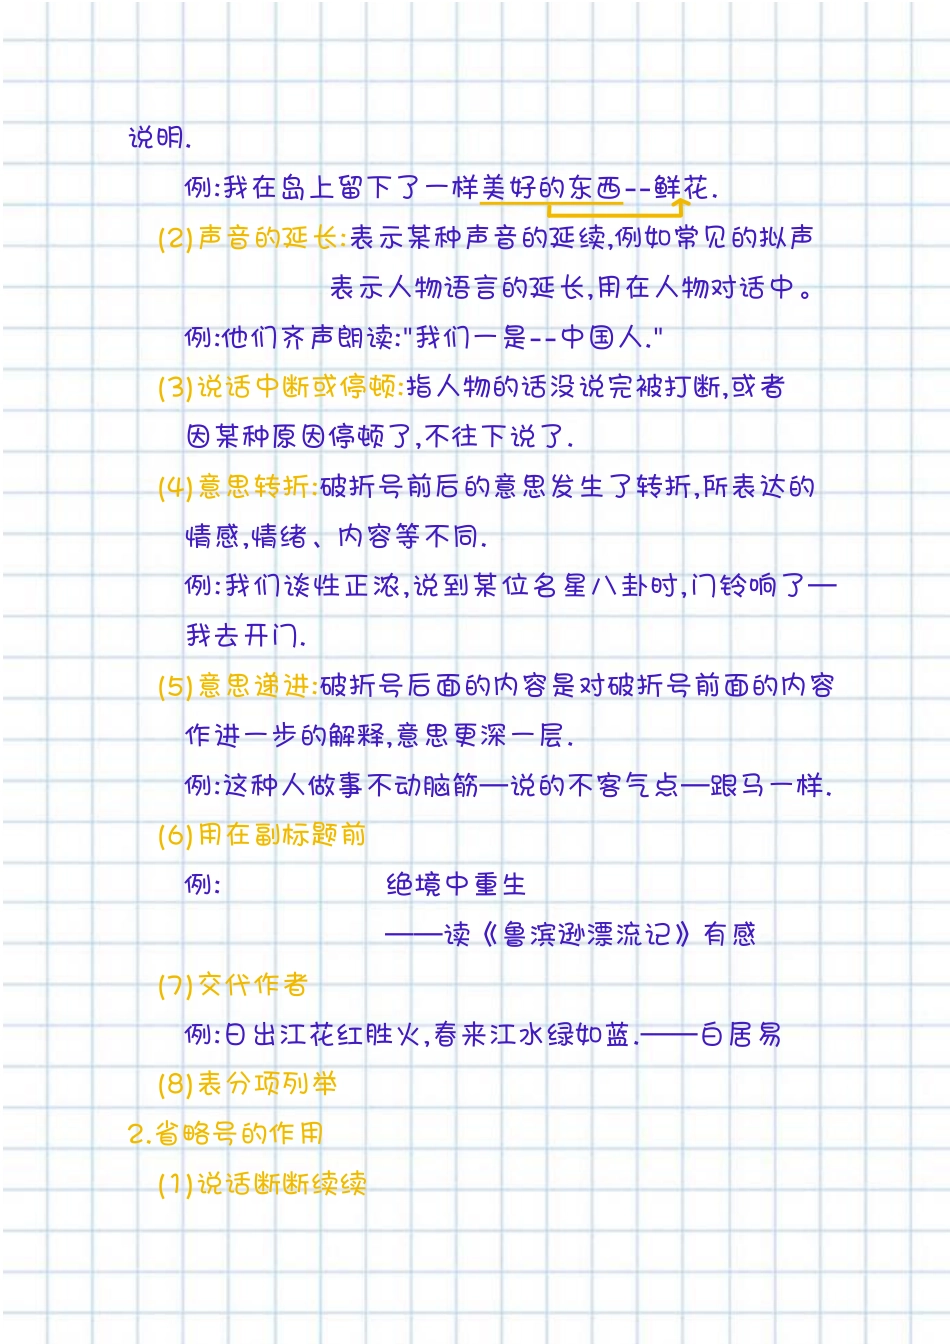 说明.
例:我在岛上留下了一样美好的东西--鲜花.
(2)声音的延长:表示某种声音的延续,例如常见的拟声
表示人物语言的延长,用在人物对话中。
例:他们齐声朗读:"我们一是--中国人."
(3)说话中断或停顿:指人物的话没说完被打断,或者
因某种原因停顿了,不往下说了.
(4)意思转折:破折号前后的意思发生了转折,所表达的
情感,情绪、内容等不同.
例:我们谈性正浓,说到某位名星八卦时,门铃响了—
我去开门.
(5)意思递进:破折号后面的内容是对破折号前面的内容
作进一步的解释,意思更深一层.
例:这种人做事不动脑筋—说的不客气点—跟马一样.
(6)用在副标题前
例: 绝境中重生
——读《鲁滨逊漂流记》有感
(7)交代作者
例:日出江花红胜火,春来江水绿如蓝.——白居易
(8)表分项列举
2.省略号的作用
(1)说话断断续续